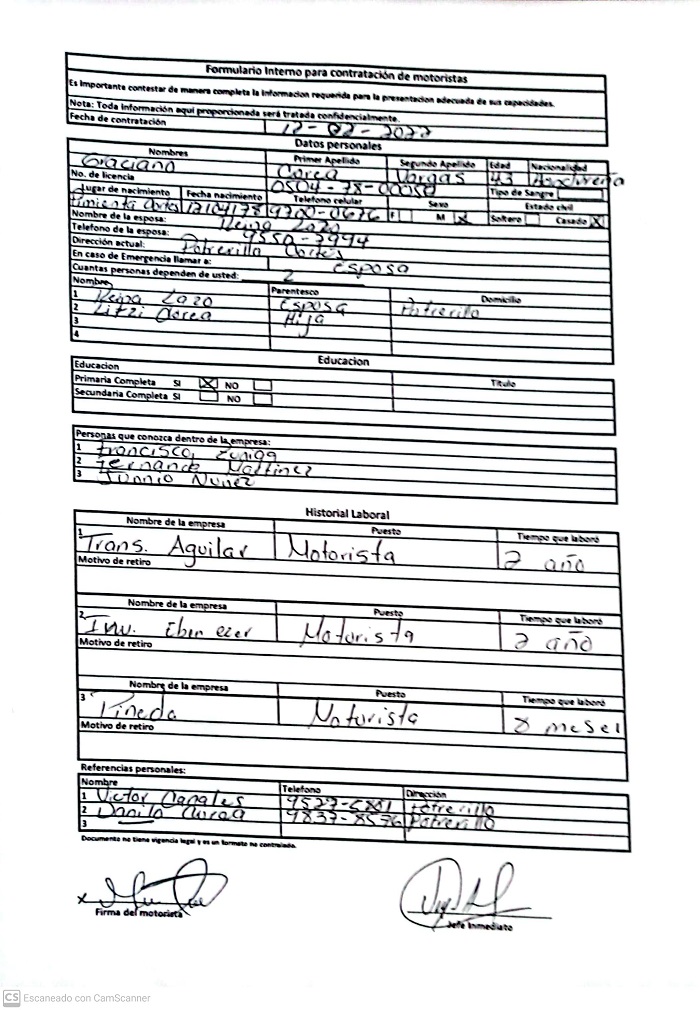 Formulario Interno para contratación de motoristas
Es Importante contestar de manera completa la informacion requerida para la presentacion adecuada de sus capacidades.
Nota: Toda Información aquí proporcionada será tratada confidencialmente.
Fecha de contratación 12-02-2022
Datos personales
Nombres Primer Apellido Segundo Apellido Edad Nacionalidad
Graciano Corea Vargas 43 Hondureña
No. de licencia 0504-78-00050 Tipo de Sangre
Lugar de nacimiento Fecha nacimiento Telefono celular Sexo Estado civil
Pimienta Cortes 9700-0676 F M X Soltero Casado X
Nombre de la esposa: Lazo
Telefono de la esposa: 9550-7994
Dirección actual: Potrerillo Cortés
En caso de Emergencia llamar a: Esposa
Cuantas personas dependen de usted: 2
Nombre Parentesco Domicilio
1 Lazo Esposa Potrerillo
2 Litzi Corea Hija
3
4
Educacion
Educacion
Primaria Completa SI X NO Titulo
Secundaria Completa SI NO
Personas que conozca dentro de la empresa:
1 Francisco Zuniga
2 Fernando Martinez
3 Junnio Nuñez
Historial Laboral
Nombre de la empresa Puesto Tiempo que laboró
1 Trans. Aguilar Motorista 2 año
Motivo de retiro
Nombre de la empresa Puesto Tiempo que laboró
2 Inv. Eben ezer Motorista 2 año
Motivo de retiro
Nombre de la empresa Puesto Tiempo que laboró
3 Pineda Motorista 8 meses
Motivo de retiro
Referencias personales:
Nombre Telefono Dirección
1 Victor Canales Potrerillo
2 Danilo Corea 9837-8576 Potrerillo
3
Documento no tiene vigencia legal y es un formato no controlado.
x
Firma del motorista Jefe Inmediato
CS Escaneado con CamScanner